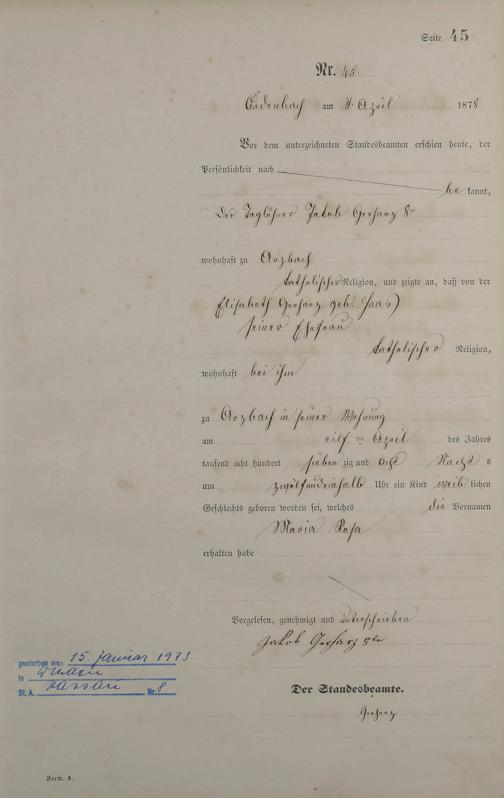 Seite 45
Nr. 45.
am 11. April 1878
Vor dem unterzeichneten Standesbeamten erschien heute, der
Persönlichkeit nach
be kannt,
Der Taglöhner Jakob Gerharz 8ter
wohnhaft zu Arzbach
katholischer Religion, und zeigte an, daß von der
Elisabeth Gerharz geb. Haas)
seiner Ehefrau
katholischer Religion,
wohnhaft bei ihm
zu Arzbach in seiner Wohnung
am eilf ten April des Jahres
tausend acht hundert sieben zig und acht Nachts
um zwölfundeinhalb Uhr ein Kind weib lichen
Geschlechts geboren worden sei, welches die Vornamen
Maria Rosa
erhalten habe
Vorgelesen, genehmigt und unterschrieben
Jakob Gerharz 8ter
Der Standesbeamte.
Gerharz
gestorben am: 15 Januar 1973
in
St. A. Nassau Nr. 8
Form. A.